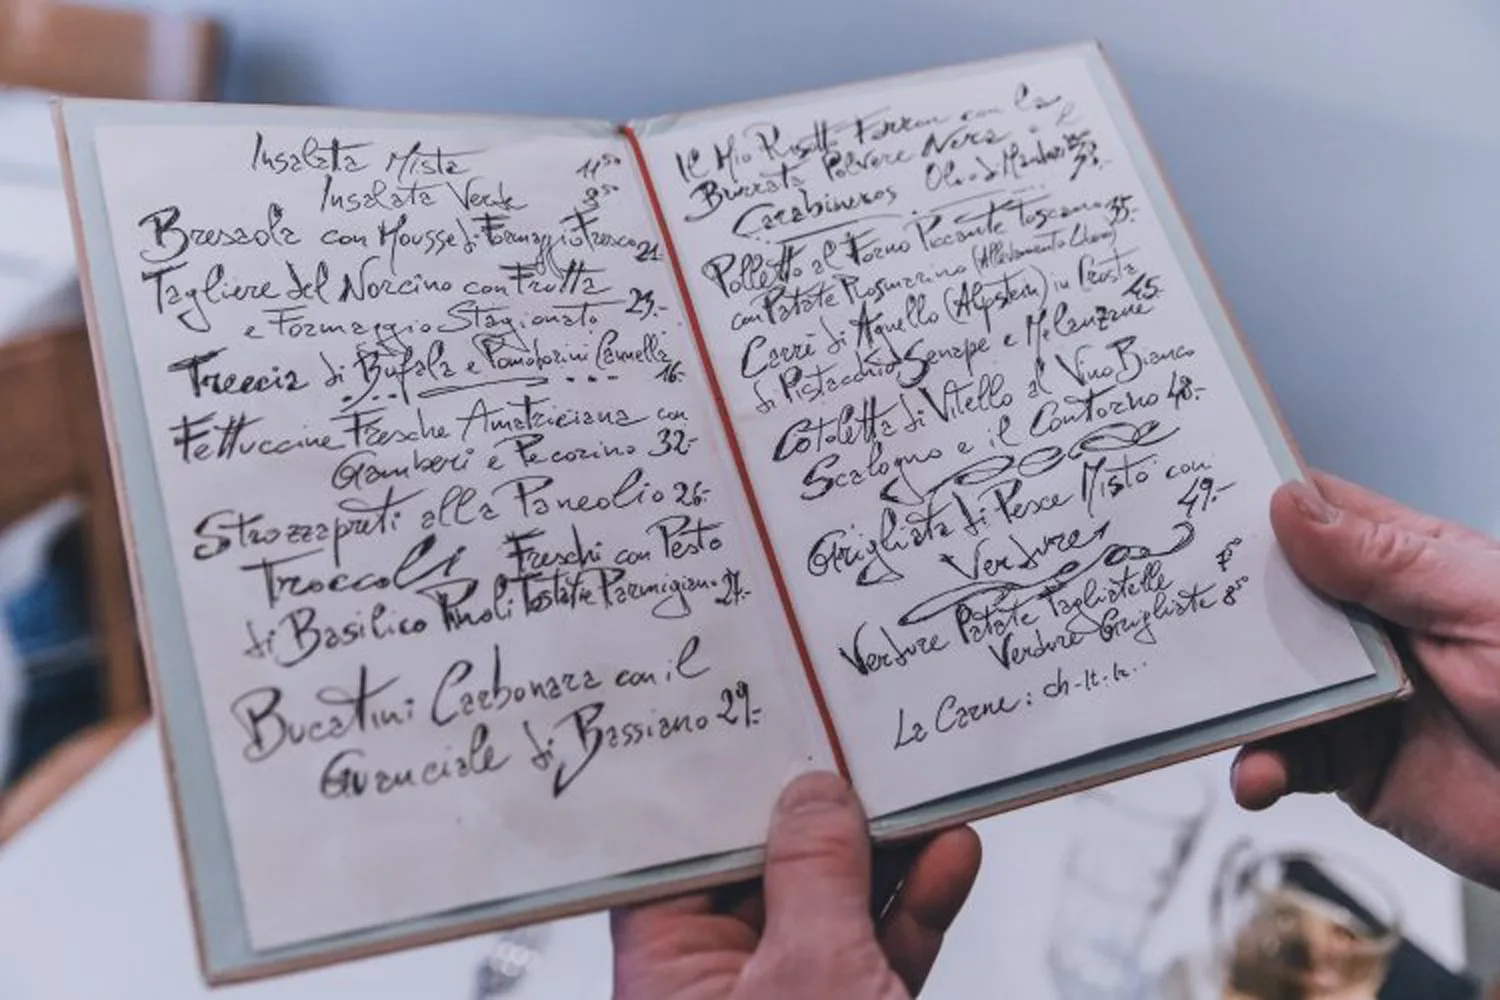 Insalata Mista 11.50
Insalata Verde 9.50
Bresaola con Mousse di Formaggio Fresco 21.-
Tagliere del Norcino con Frutta
e Formaggio Stagionato 23.-
Treccia di Bufala e Pomodorini Cannella
16.-
Fettuccine Fresche Amatriciana con
Gamberi e Pecorino 32.-
Strozzapreti alla Paneolio 26.-
Troccoli Freschi con Pesto
di Basilico Pinoli Tostati e Parmigiano 27.-
Bucatini Carbonara con il
Guanciale di Bassiano 29.-
Il Mio Risotto con la
Burrata Polvere Nera e il
Carabineros Olio di
Polletto al Forno Piccante Toscano 35.-
con Patate Rosmarino (Allevamento)
Carrè di Agnello (Alpstein) in Crosta
di Pistacchio Senape e Melanzane 45.-
Cotoletta di Vitello al Vino Bianco
Scalogno e il Contorno 48.-
Grigliata di Pesce Misto con
Verdure 49.-
Verdure Patate Tagliatelle
Verdure Grigliate 8.50
La Carne: ch-It-Ir..